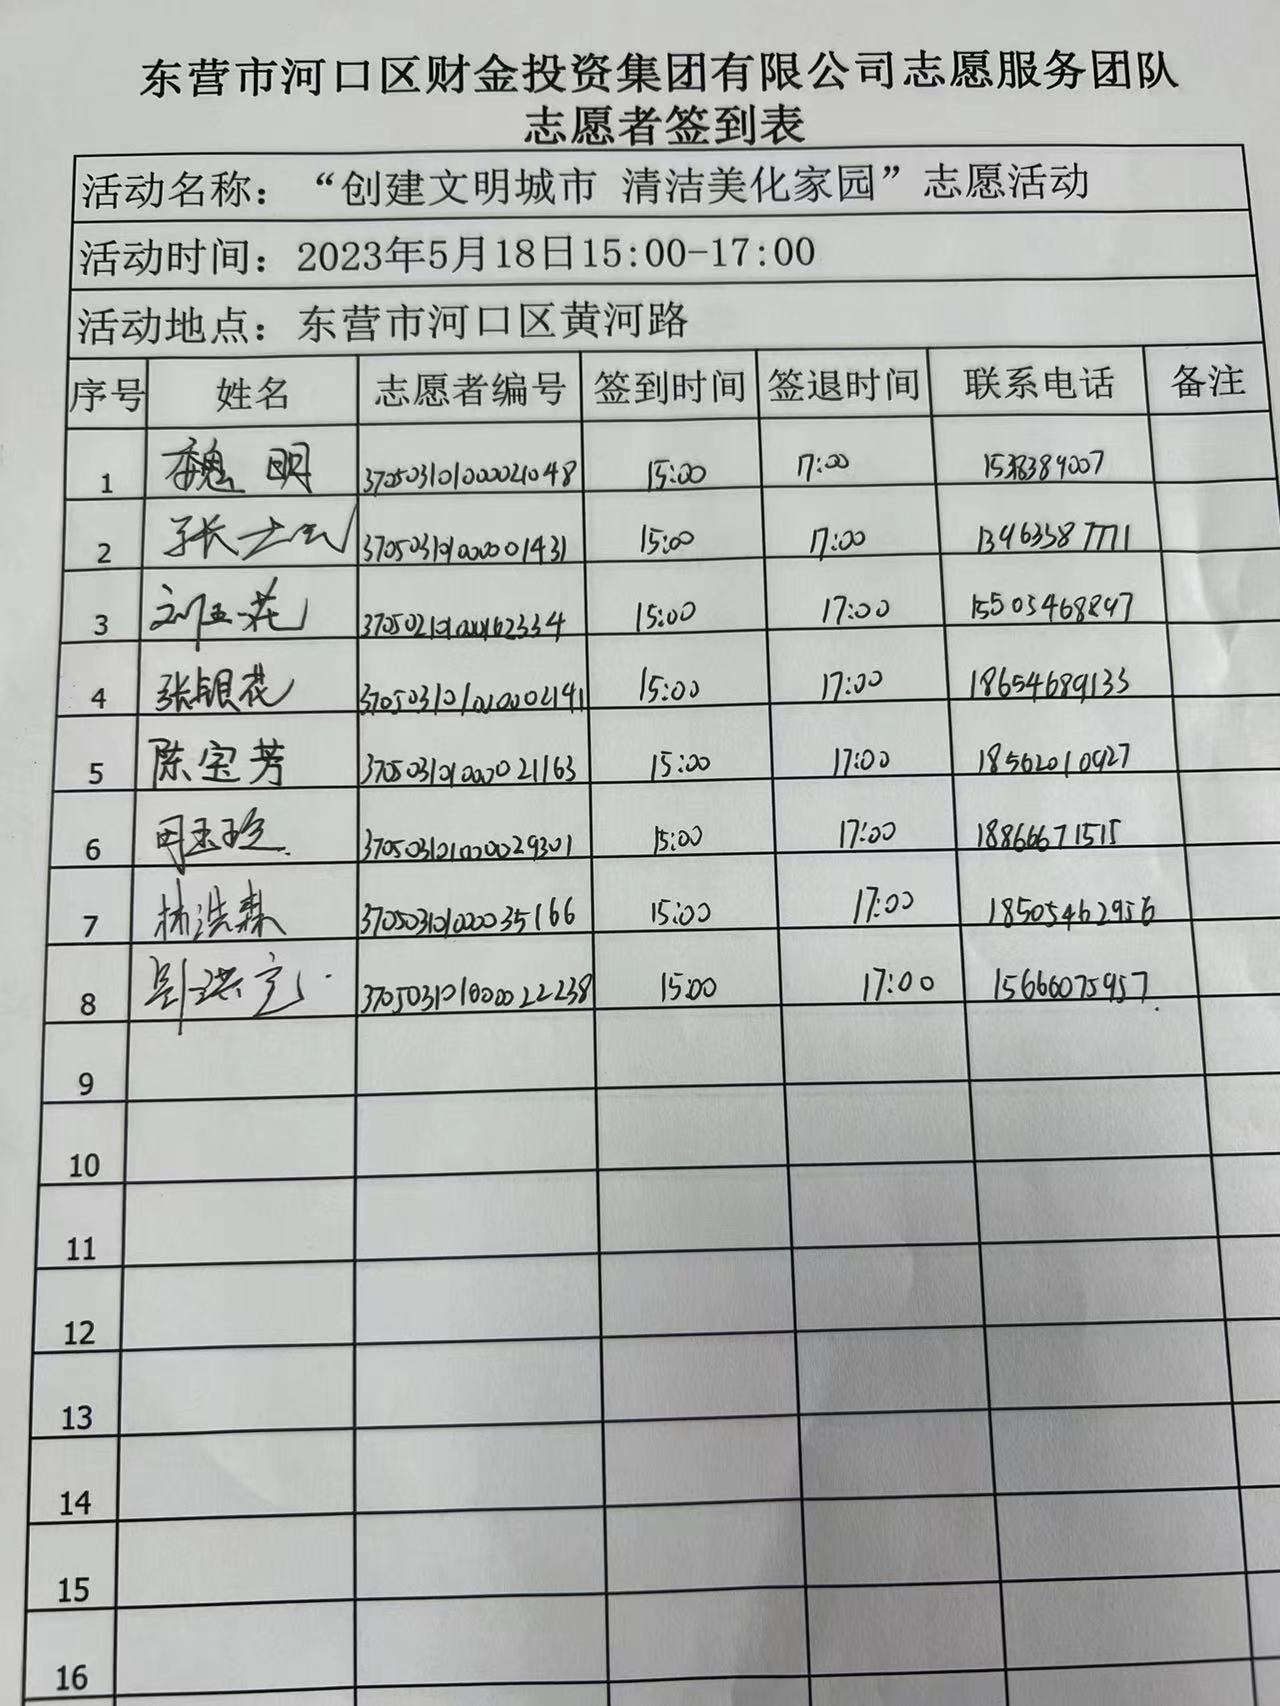 东营市河口区财金投资集团有限公司志愿服务团队
志愿者签到表
活动名称：“创建文明城市 清洁美化家园”志愿活动
活动时间：2023年5月18日15:00-17:00
活动地点：东营市河口区黄河路
序号 姓名 志愿者编号 签到时间 签退时间 联系电话 备注
1 魏明 370503101000021048 15:00 17:00
2 15:00 17:00 13463387771
3 15:00 17:00 15505468897
4 张银花 15:00 17:00 18654689133
5 陈宝芳 370503101000021163 15:00 17:00 18562010927
6 370503101000029301 15:00 17:00 18866671515
7 林浩森 370503101000035166 15:00 17:00 18505462956
8 370503101000022238 15:00 17:00 15666075957
9
10
11
12
13
14
15
16